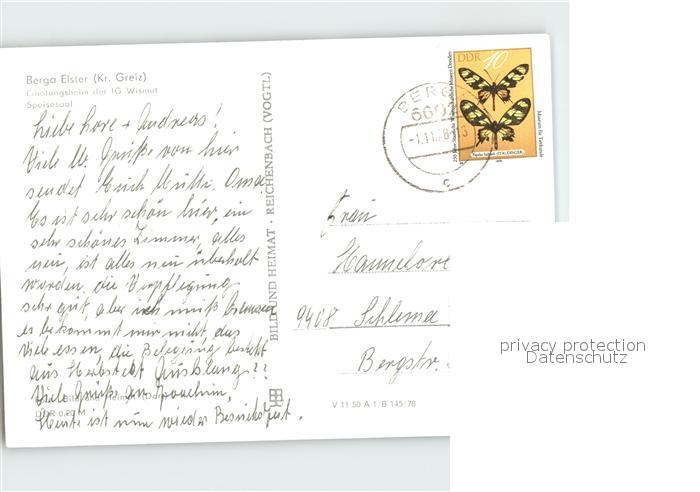 Berga Elster (Kr. Greiz)
Erholungsheim der IG Wismut
Speisesaal
Liebe Lore + Andreas!
Viele lb. Grüße von hier
sendet Euch Mutti. Oma.
Es ist sehr schön hier, ein
sehr schönes Zimmer, alles
neu, ist alles neu überholt
worden. die Verpflegung
sehr gut, aber ich muß
es bekommt mir nicht, das
Viele essen, die Belegung besteht
aus
Viele Grüße an Joachim,
Heute ist nun wieder Besuchszeit.
Bild und Heimat (Dorn)
DDR 0,20 M
BILD UND HEIMAT · REICHENBACH (VOGTL)
V 11 50 A 1/B 145/78
BERGA
-1.11.78-13
c
DDR 10
250 Jahre Staatliche Wissenschaftliche Museen Dresden
Museum für Tierkunde
Frau
Hannelore
9408 Schlema
Bergstr.
privacy protection
Datenschutz